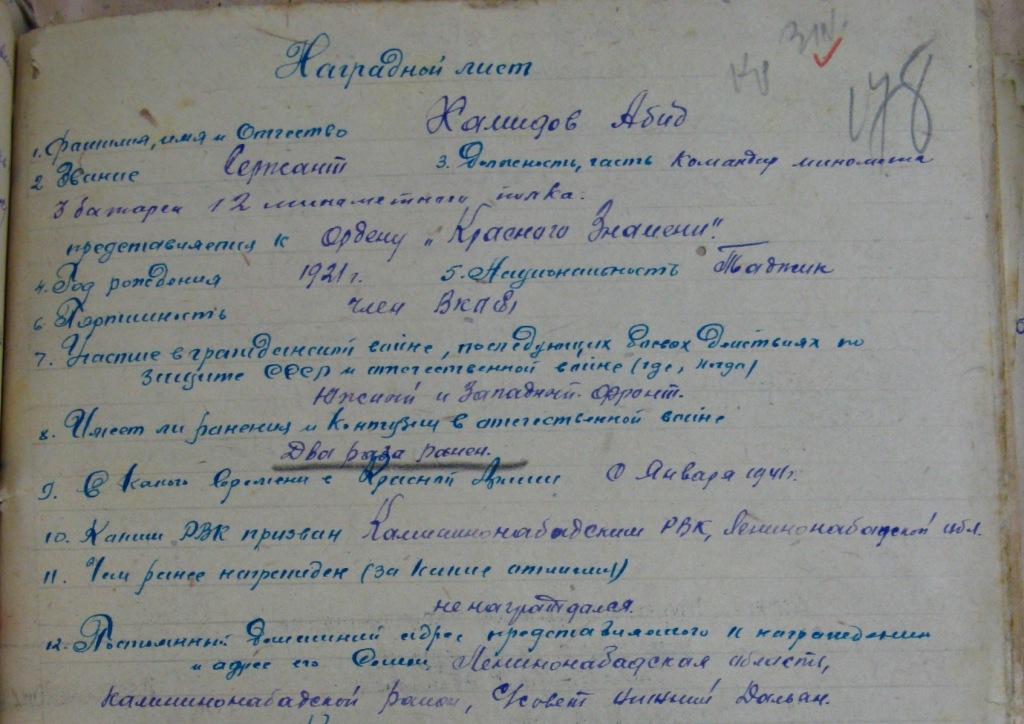 178
Наградной лист
1. Фамилия, имя и Отчество Хамидов Абид
2 Звание Сержант 3. Должность, часть Командир миномета
3 батареи 12 минометного полка.
представляется к Ордену „Красного Знамени".
4. Год рождения 1921 г. 5. Национальность Таджик
6 Партийность член ВКП(б)
7. Участие в гражданской войне, последующих боевых действиях по
защите СССР и отечественной войне (где, когда)
Южный и Западный фронт.
8. Имеет ли ранения и контузии в отечественной войне
Два раза ранен.
9. С какого времени в Красной Армии С Января 1941 г.
10. Каким РВК призван Калининонабадским РВК, Ленинонабадской обл.
11. Чем ранее награжден (за какие отличия)
не награждался.
12. Постоянный домашний адрес представляемого к награждению
и адрес его семьи Ленинонабадская область,
Калининонабадской район, С/совет нижний Дальян.